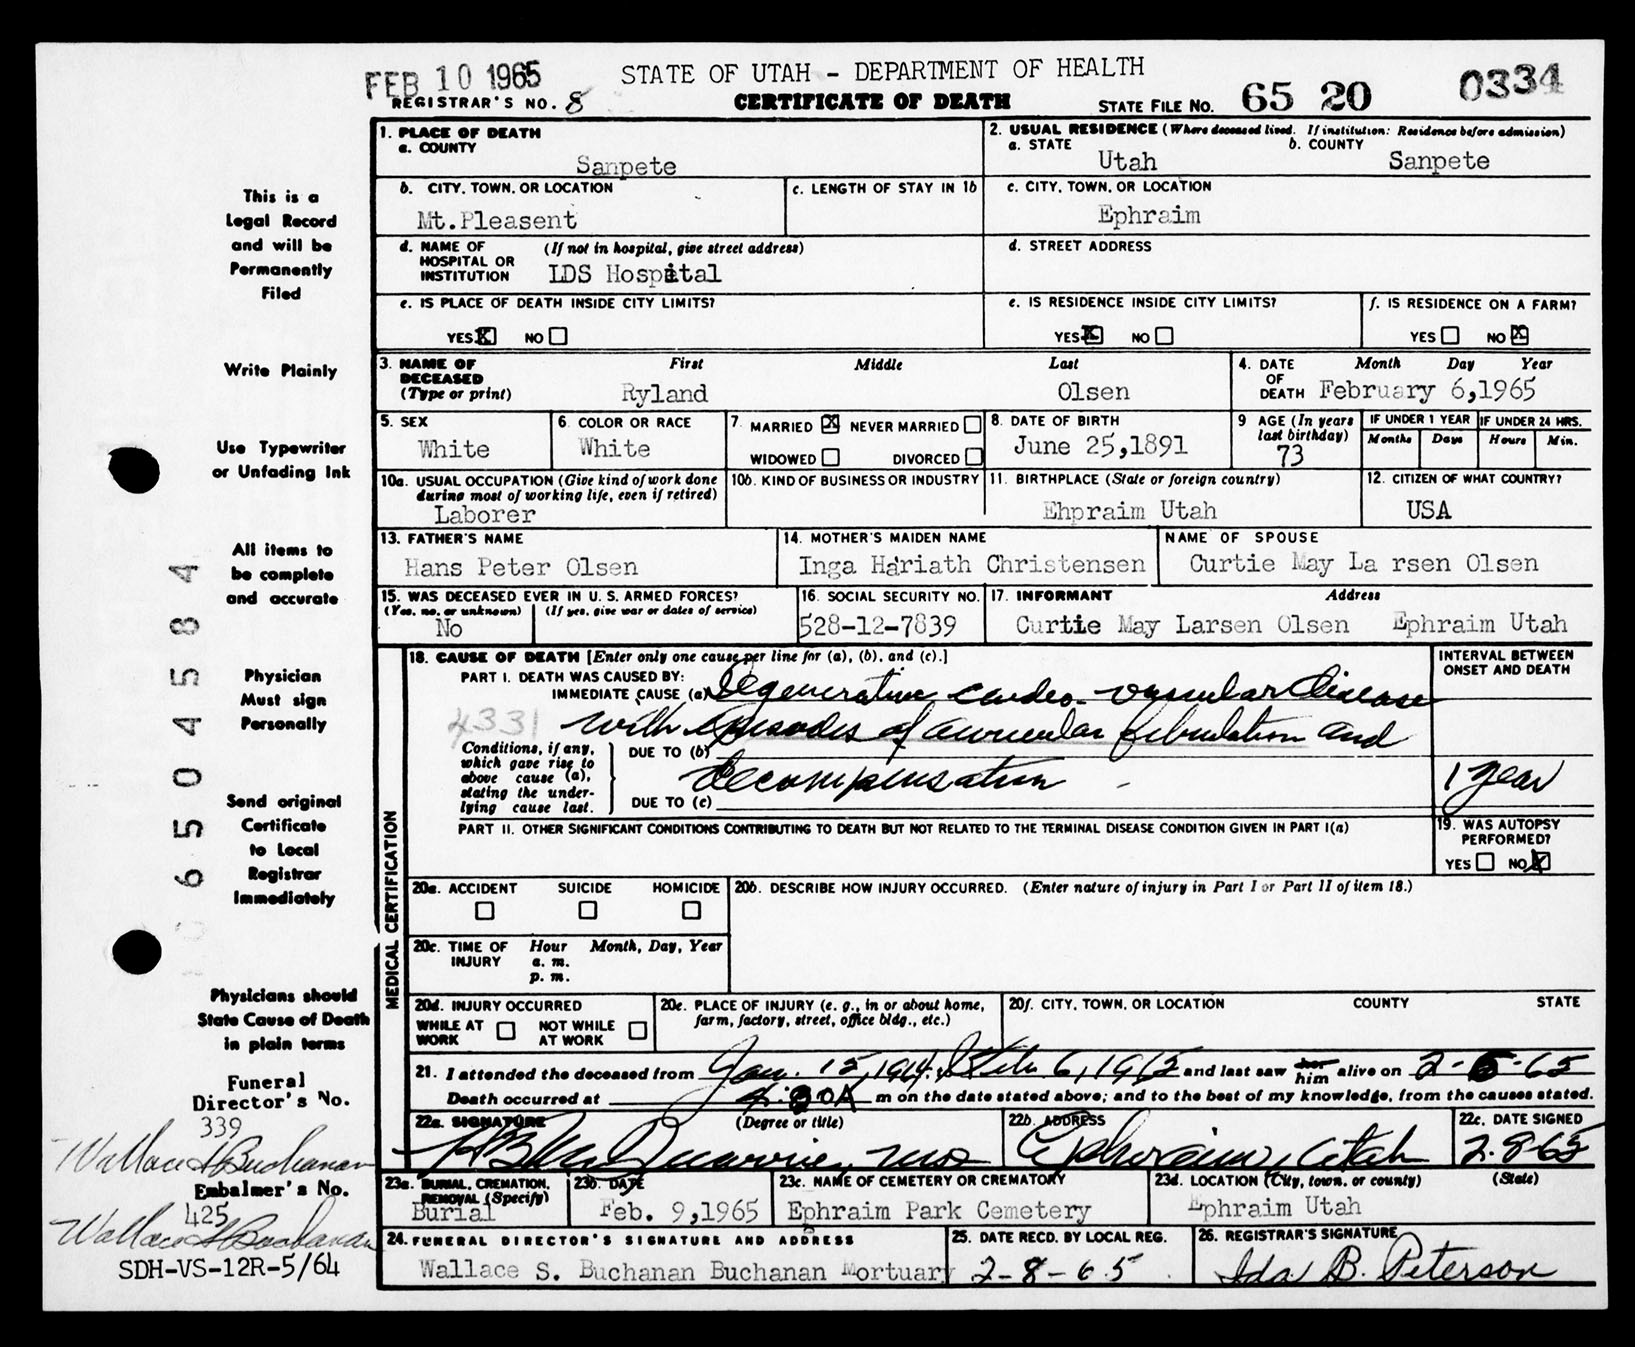 FEB 10 1965
STATE OF UTAH - DEPARTMENT OF HEALTH
REGISTRAR'S NO. 8
CERTIFICATE OF DEATH
STATE FILE NO. 65 20 0334
1. PLACE OF DEATH
a. COUNTY
Sanpete
2. USUAL RESIDENCE (Where deceased lived. If institution: Residence before admission)
a. STATE
Utah
b. COUNTY
Sanpete
b. CITY, TOWN, OR LOCATION
Mt.Pleasent
c. LENGTH OF STAY IN 1b
c. CITY, TOWN, OR LOCATION
Ephraim
d. NAME OF HOSPITAL OR INSTITUTION
(If not in hospital, give street address)
LDS Hospital
d. STREET ADDRESS
e. IS PLACE OF DEATH INSIDE CITY LIMITS?
YES X NO
e. IS RESIDENCE INSIDE CITY LIMITS?
YES X NO
f. IS RESIDENCE ON A FARM?
YES NO X
3. NAME OF DECEASED (Type or print)
First Middle Last
Ryland Olsen
4. DATE OF DEATH
Month Day Year
February 6,1965
5. SEX
White
6. COLOR OR RACE
White
7. MARRIED X NEVER MARRIED
WIDOWED DIVORCED
8. DATE OF BIRTH
June 25,1891
9 AGE (In years last birthday)
73
IF UNDER 1 YEAR
Months Days
IF UNDER 24 HRS.
Hours Min.
10a. USUAL OCCUPATION (Give kind of work done during most of working life, even if retired)
Laborer
10b. KIND OF BUSINESS OR INDUSTRY
11. BIRTHPLACE (State or foreign country)
Ehpraim Utah
12. CITIZEN OF WHAT COUNTRY?
USA
13. FATHER'S NAME
Hans Peter Olsen
14. MOTHER'S MAIDEN NAME
Inga Hariath Christensen
NAME OF SPOUSE
Curtie May La rsen Olsen
15. WAS DECEASED EVER IN U. S. ARMED FORCES?
(Yes, no, or unknown) (If yes, give war or dates of service)
No
16. SOCIAL SECURITY NO.
528-12-7839
17. INFORMANT Address
Curtie May Larsen Olsen Ephraim Utah
MEDICAL CERTIFICATION
18. CAUSE OF DEATH [Enter only one cause per line for (a), (b), and (c).]
INTERVAL BETWEEN ONSET AND DEATH
PART I. DEATH WAS CAUSED BY:
IMMEDIATE CAUSE (a) Degenerative cardeo-vascular Disease
4331 with episodes of auricular fibrulation and
Conditions, if any, which gave rise to above cause (a), stating the underlying cause last.
DUE TO (b)
decompensation 1 year
DUE TO (c)
PART II. OTHER SIGNIFICANT CONDITIONS CONTRIBUTING TO DEATH BUT NOT RELATED TO THE TERMINAL DISEASE CONDITION GIVEN IN PART I(a)
19. WAS AUTOPSY PERFORMED?
YES NO X
20a. ACCIDENT SUICIDE HOMICIDE
20b. DESCRIBE HOW INJURY OCCURRED. (Enter nature of injury in Part I or Part II of item 18.)
20c. TIME OF INJURY
Hour Month, Day, Year
a. m.
p. m.
20d. INJURY OCCURRED
WHILE AT WORK NOT WHILE AT WORK
20e. PLACE OF INJURY (e. g., in or about home, farm, factory, street, office bldg., etc.)
20f. CITY, TOWN, OR LOCATION COUNTY STATE
21. I attended the deceased from Jan. 15, 1964, to Feb 6, 1965 and last saw her him alive on 2-6-65
Death occurred at m on the date stated above; and to the best of my knowledge, from the causes stated.
22a. SIGNATURE (Degree or title)
22b. ADDRESS
Ephraim, Utah
22c. DATE SIGNED
2-8-65
23a. BURIAL, CREMATION, REMOVAL (Specify)
Burial
23b. DATE
Feb. 9,1965
23c. NAME OF CEMETERY OR CREMATORY
Ephraim Park Cemetery
23d. LOCATION (City, town, or county) (State)
Ephraim Utah
24. FUNERAL DIRECTOR'S SIGNATURE AND ADDRESS
Wallace S. Buchanan Buchanan Mortuary
25. DATE RECD. BY LOCAL REG.
2-8-65
26. REGISTRAR'S SIGNATURE
Ida B. Peterson
This is a
Legal Record
and will be
Permanently
Filed
Write Plainly
Use Typewriter
or Unfading Ink
All items to
be complete
and accurate
Physician
Must sign
Personally
Send original
Certificate
to Local
Registrar
Immediately
Physicians should
State Cause of Death
in plain terms
Funeral
Director's No.
339
Wallace S Buchanan
Embalmer's No.
425
Wallace S Buchanan
SDH-VS-12R-5/64
6504584